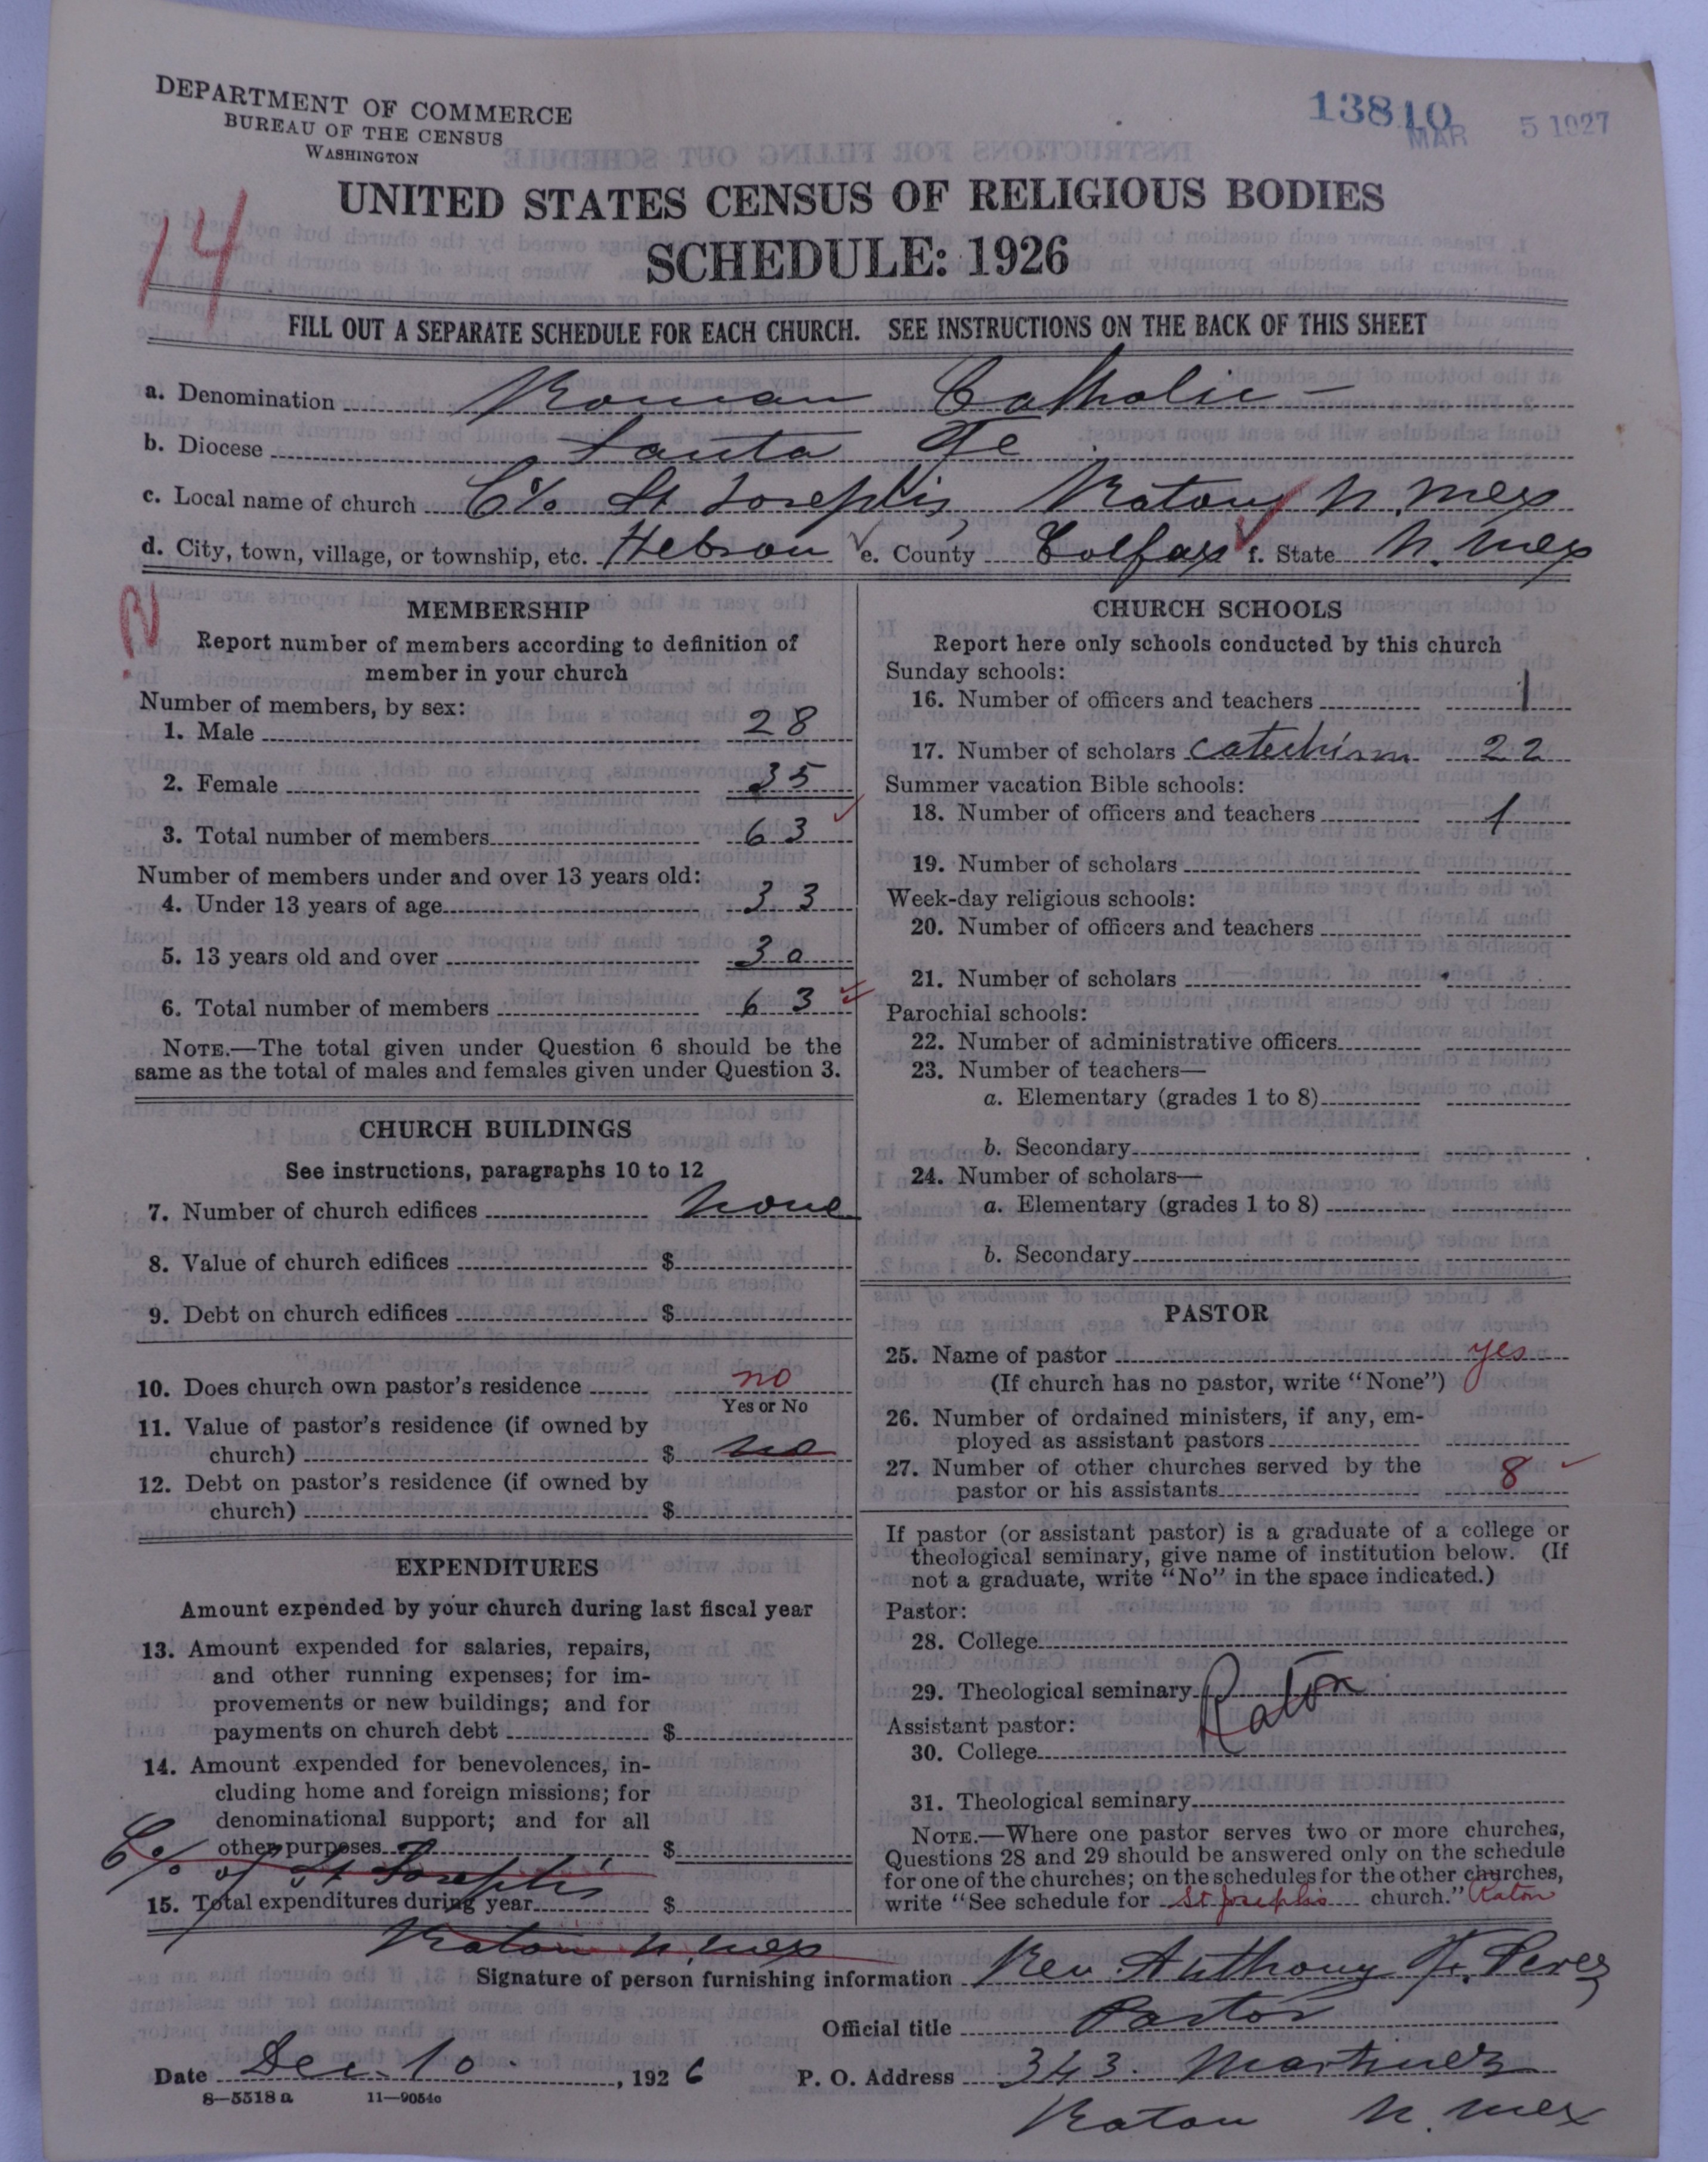 DEPARTMENT OF COMMERCE
BUREAU OF THE CENSUS
WASHINGTON
13810
MAR 5 1927
14
UNITED STATES CENSUS OF RELIGIOUS BODIES
SCHEDULE: 1926
FILL OUT A SEPARATE SCHEDULE FOR EACH CHURCH. SEE INSTRUCTIONS ON THE BACK OF THIS SHEET
a. Denomination Roman Catholic
b. Diocese Santa Fe
c. Local name of church C/o St Joseph's, Raton N. Mex
d. City, town, village, or township, etc. Hebron e. County Colfax f. State N. Mex
MEMBERSHIP
Report number of members according to definition of
member in your church
Number of members, by sex:
1. Male 28
2. Female 35
3. Total number of members 63
Number of members under and over 13 years old:
4. Under 13 years of age 33
5. 13 years old and over 30
6. Total number of members 63
NOTE.—The total given under Question 6 should be the
same as the total of males and females given under Question 3.
CHURCH BUILDINGS
See instructions, paragraphs 10 to 12
7. Number of church edifices none
8. Value of church edifices $
9. Debt on church edifices $
10. Does church own pastor's residence no
Yes or No
11. Value of pastor's residence (if owned by
church) $ no
12. Debt on pastor's residence (if owned by
church) $
EXPENDITURES
Amount expended by your church during last fiscal year
13. Amount expended for salaries, repairs,
and other running expenses; for im-
provements or new buildings; and for
payments on church debt $
14. Amount expended for benevolences, in-
cluding home and foreign missions; for
denominational support; and for all
other purposes $
C/o of St Joseph's
15. Total expenditures during year $
Raton N. Mex
CHURCH SCHOOLS
Report here only schools conducted by this church
Sunday schools:
16. Number of officers and teachers 1
17. Number of scholars Catechism 22
Summer vacation Bible schools:
18. Number of officers and teachers 1
19. Number of scholars
Week-day religious schools:
20. Number of officers and teachers
21. Number of scholars
Parochial schools:
22. Number of administrative officers
23. Number of teachers—
a. Elementary (grades 1 to 8)
b. Secondary
24. Number of scholars—
a. Elementary (grades 1 to 8)
b. Secondary
PASTOR
25. Name of pastor yes
(If church has no pastor, write "None")
26. Number of ordained ministers, if any, em-
ployed as assistant pastors
27. Number of other churches served by the
pastor or his assistants 8
If pastor (or assistant pastor) is a graduate of a college or
theological seminary, give name of institution below. (If
not a graduate, write "No" in the space indicated.)
Pastor:
28. College
29. Theological seminary Raton
Assistant pastor:
30. College
31. Theological seminary
NOTE.—Where one pastor serves two or more churches,
Questions 28 and 29 should be answered only on the schedule
for one of the churches; on the schedules for the other churches,
write "See schedule for St Joseph's church." Raton
Signature of person furnishing information Rev Anthony F. Perez
Official title Pastor
Date Dec. 10, 1926 P. O. Address 343 Martinez
8—5518 a 11—9054c
Raton N. Mex